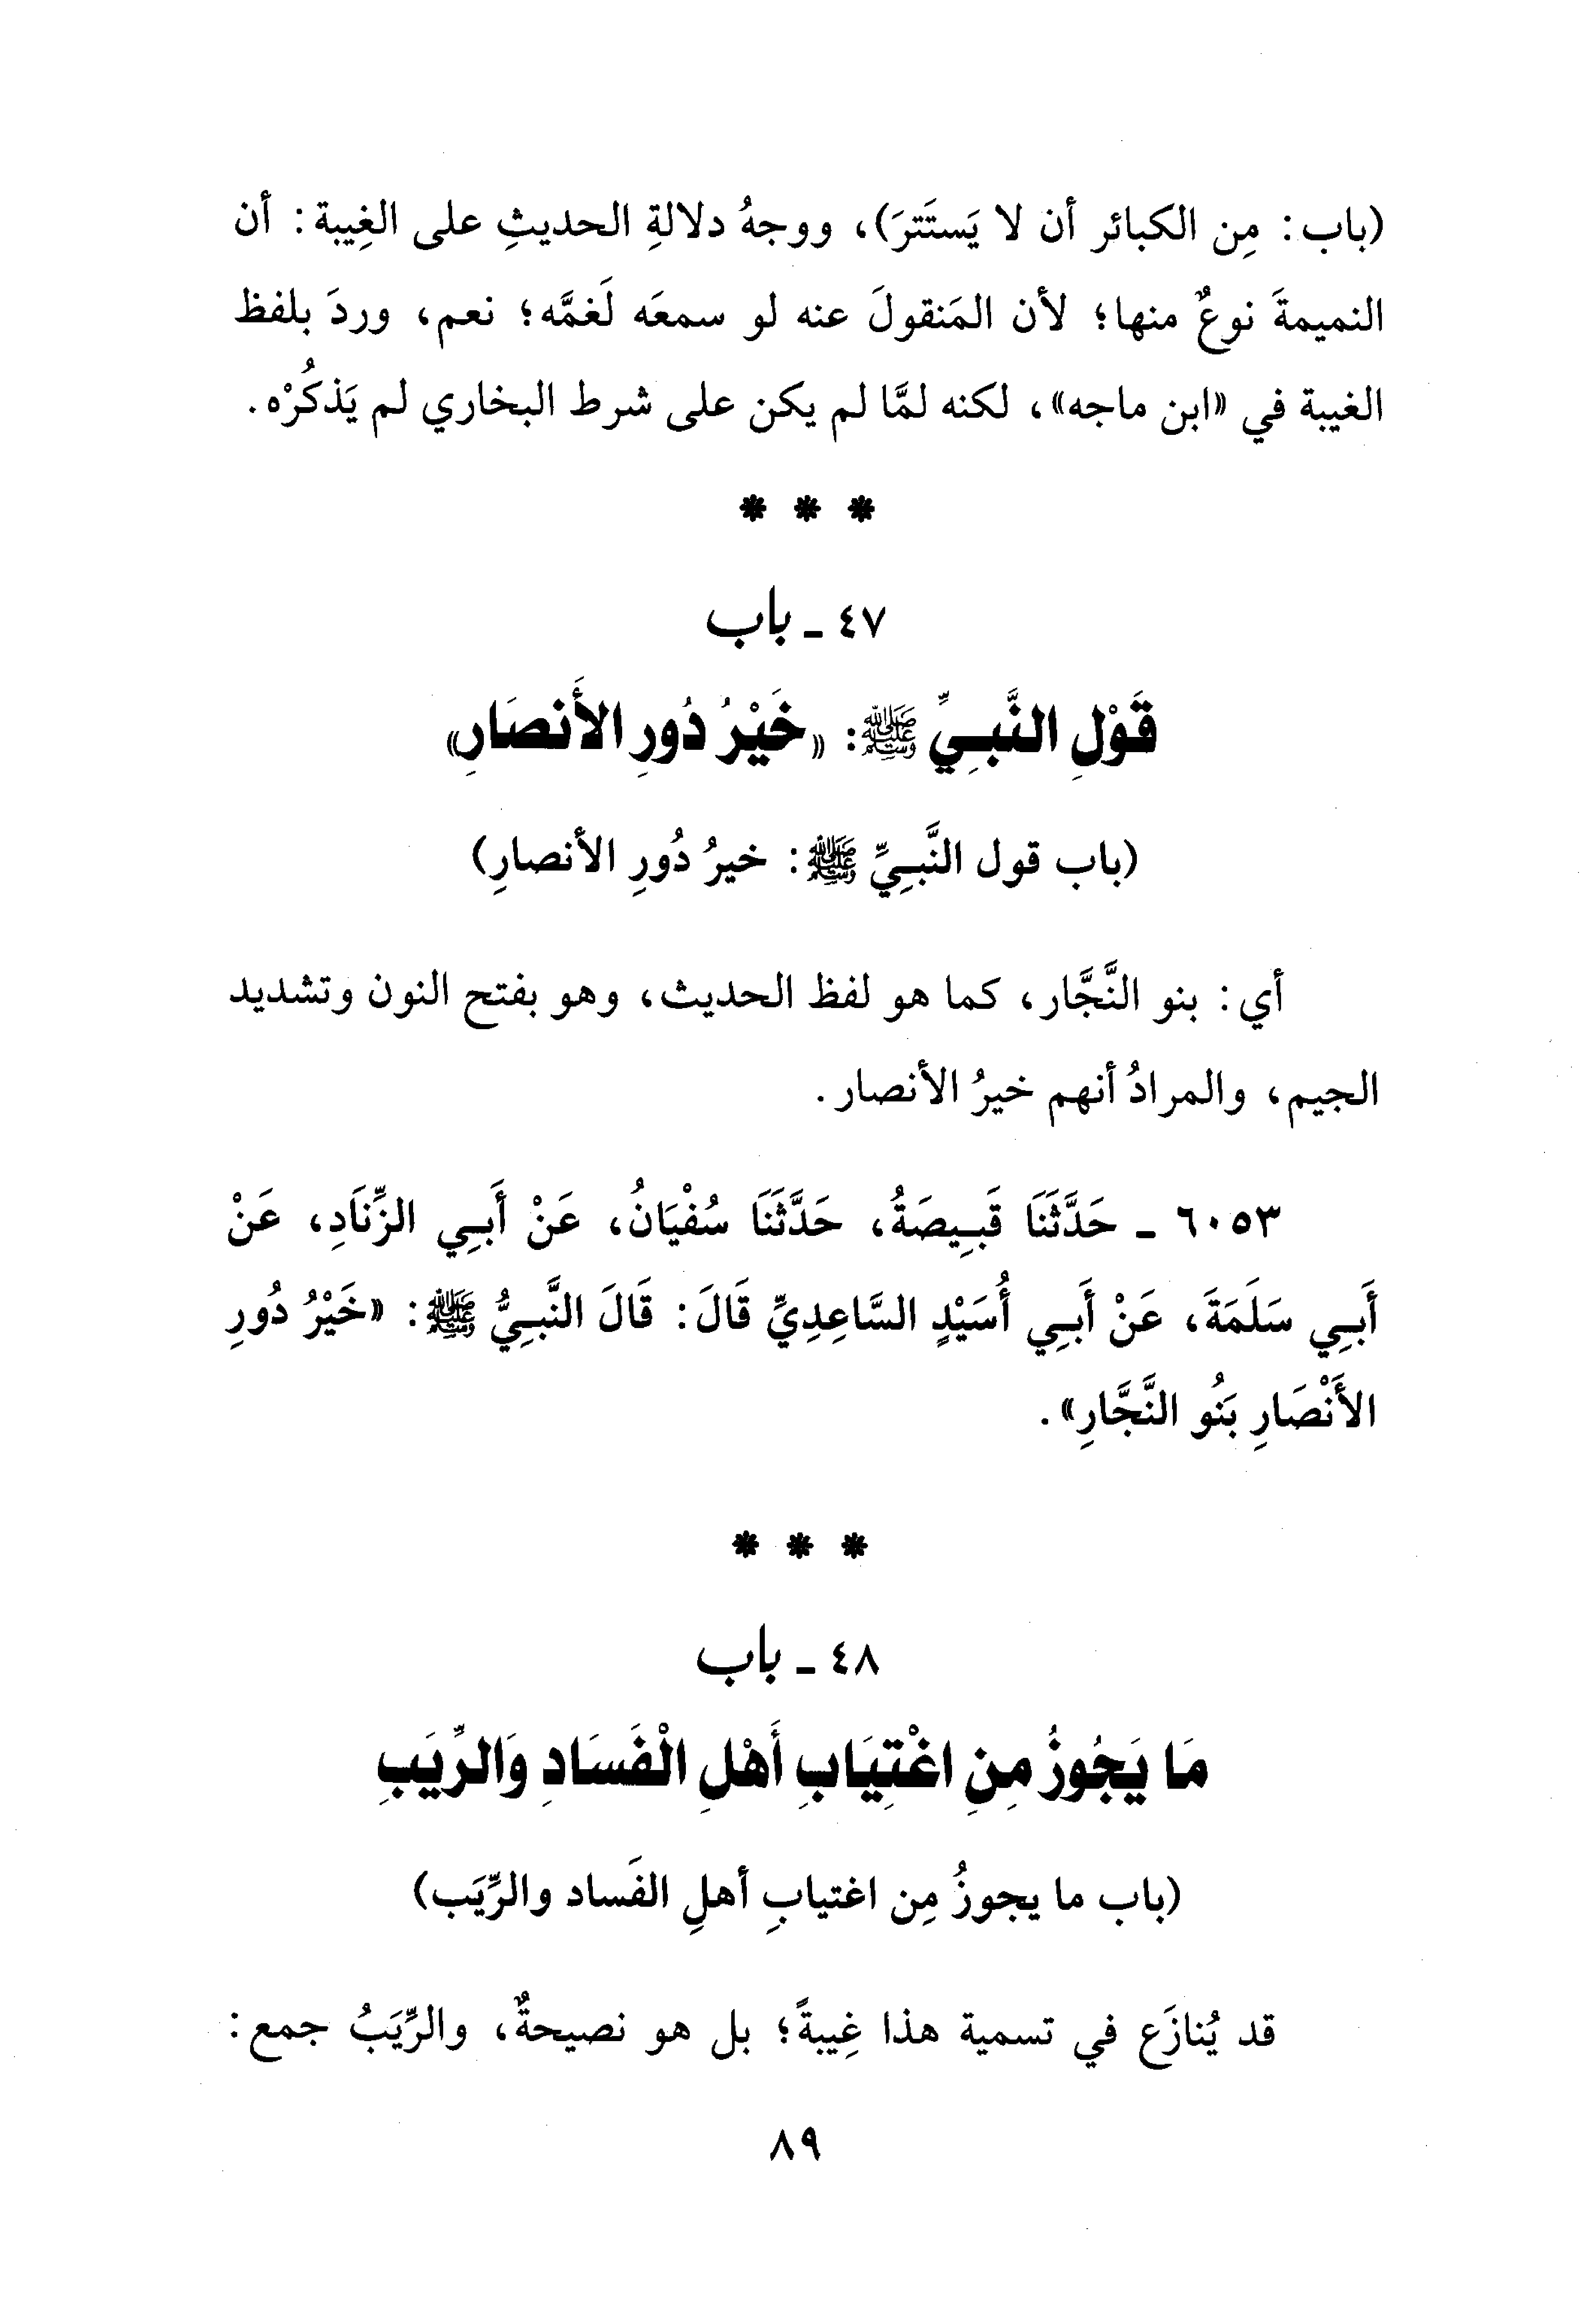 (باب: مِن الكبائر أن لا يَستَترَ)، ووجهُ دلالةِ الحديثِ على الغِيبة: أن
النميمةَ نوعٌ منها؛ لأن المَنقولَ عنه لو سمعَه لَغمَّه؛ نعم، وردَ بلفظ
الغيبة في «ابن ماجه»، لكنه لمَّا لم يكن على شرط البخاري لم يَذكُرْه.
* * *
٤٧ ـ باب
قَوْلِ النَّبِيِّ ﷺ: «خَيْرُ دُورِ الأَنصَارِ»
(باب قول النَّبِيِّ ﷺ: خيرُ دُورِ الأنصارِ)
أي: بنو النَّجَّار، كما هو لفظ الحديث، وهو بفتح النون وتشديد
الجيم، والمرادُ أنهم خيرُ الأنصار.
٦٠٥٣ ـ حَدَّثَنَا قَبِيصَةُ، حَدَّثَنَا سُفْيَانُ، عَنْ أَبِي الزِّنَادِ، عَنْ
أَبِي سَلَمَةَ، عَنْ أَبِي أُسَيْدٍ السَّاعِدِيِّ قَالَ: قَالَ النَّبِيُّ ﷺ: «خَيْرُ دُورِ
الأَنْصَارِ بَنُو النَّجَّارِ».
* * *
٤٨ ـ باب
مَا يَجُوزُ مِنِ اغْتِيَابِ أَهْلِ الْفَسَادِ وَالرِّيَبِ
(باب ما يجوزُ مِن اغتيابِ أهلِ الفَساد والرِّيَب)
قد يُنازَع في تسمية هذا غِيبةً؛ بل هو نصيحةٌ، والرِّيَبُ جمع:
٨٩